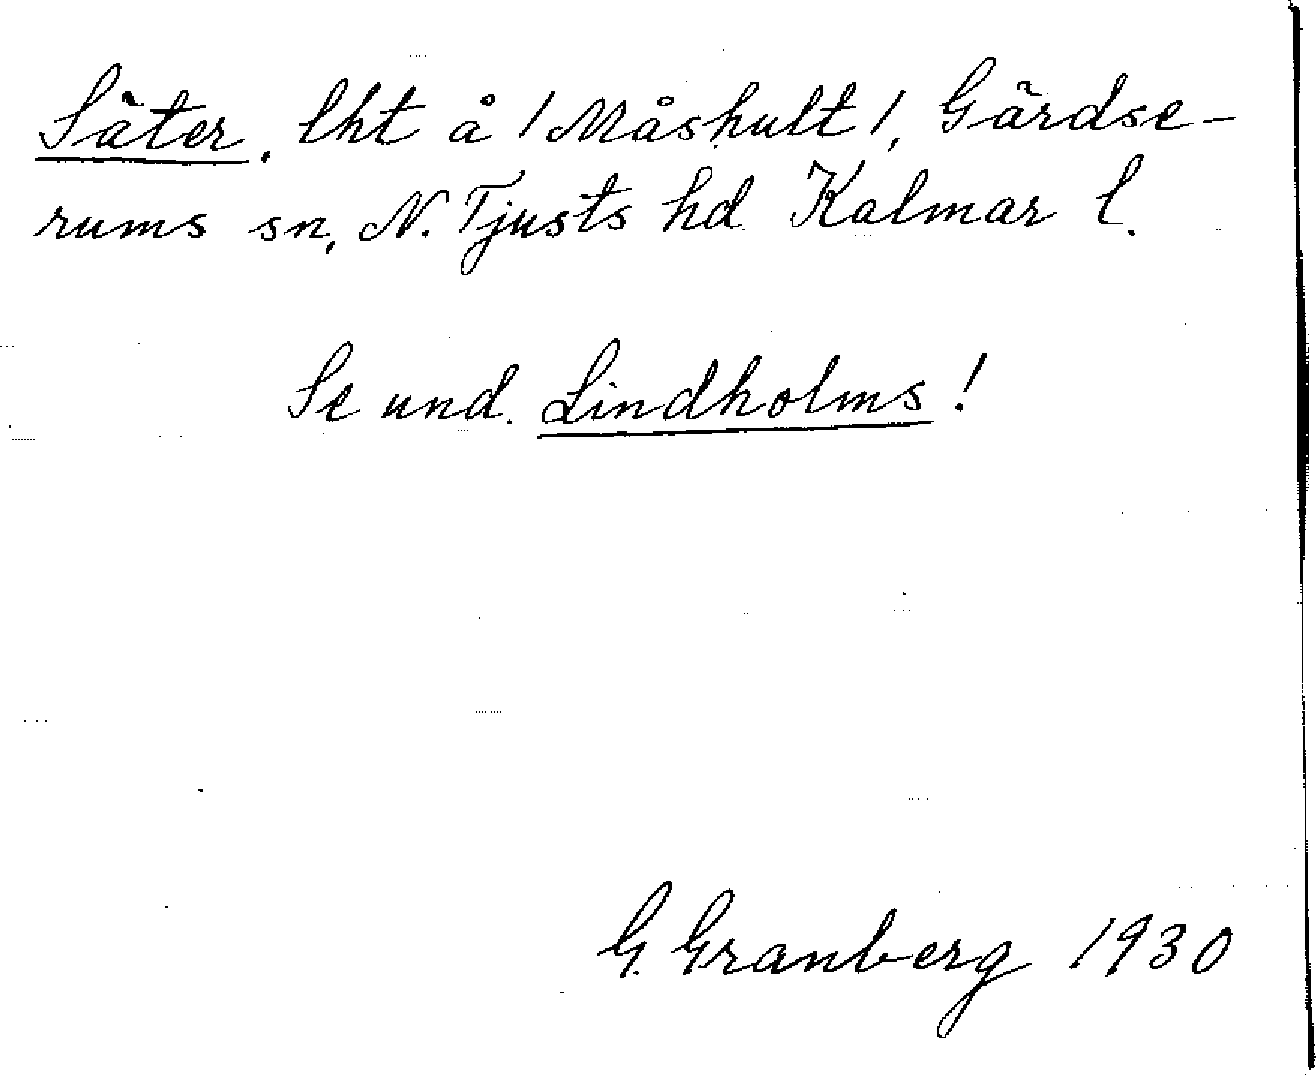 Säter. lht å /Måshult/, Gärdse-
rums sn, N. Tjusts hd Kalmar l.
Se und. Lindholms!
G. Granberg 1930